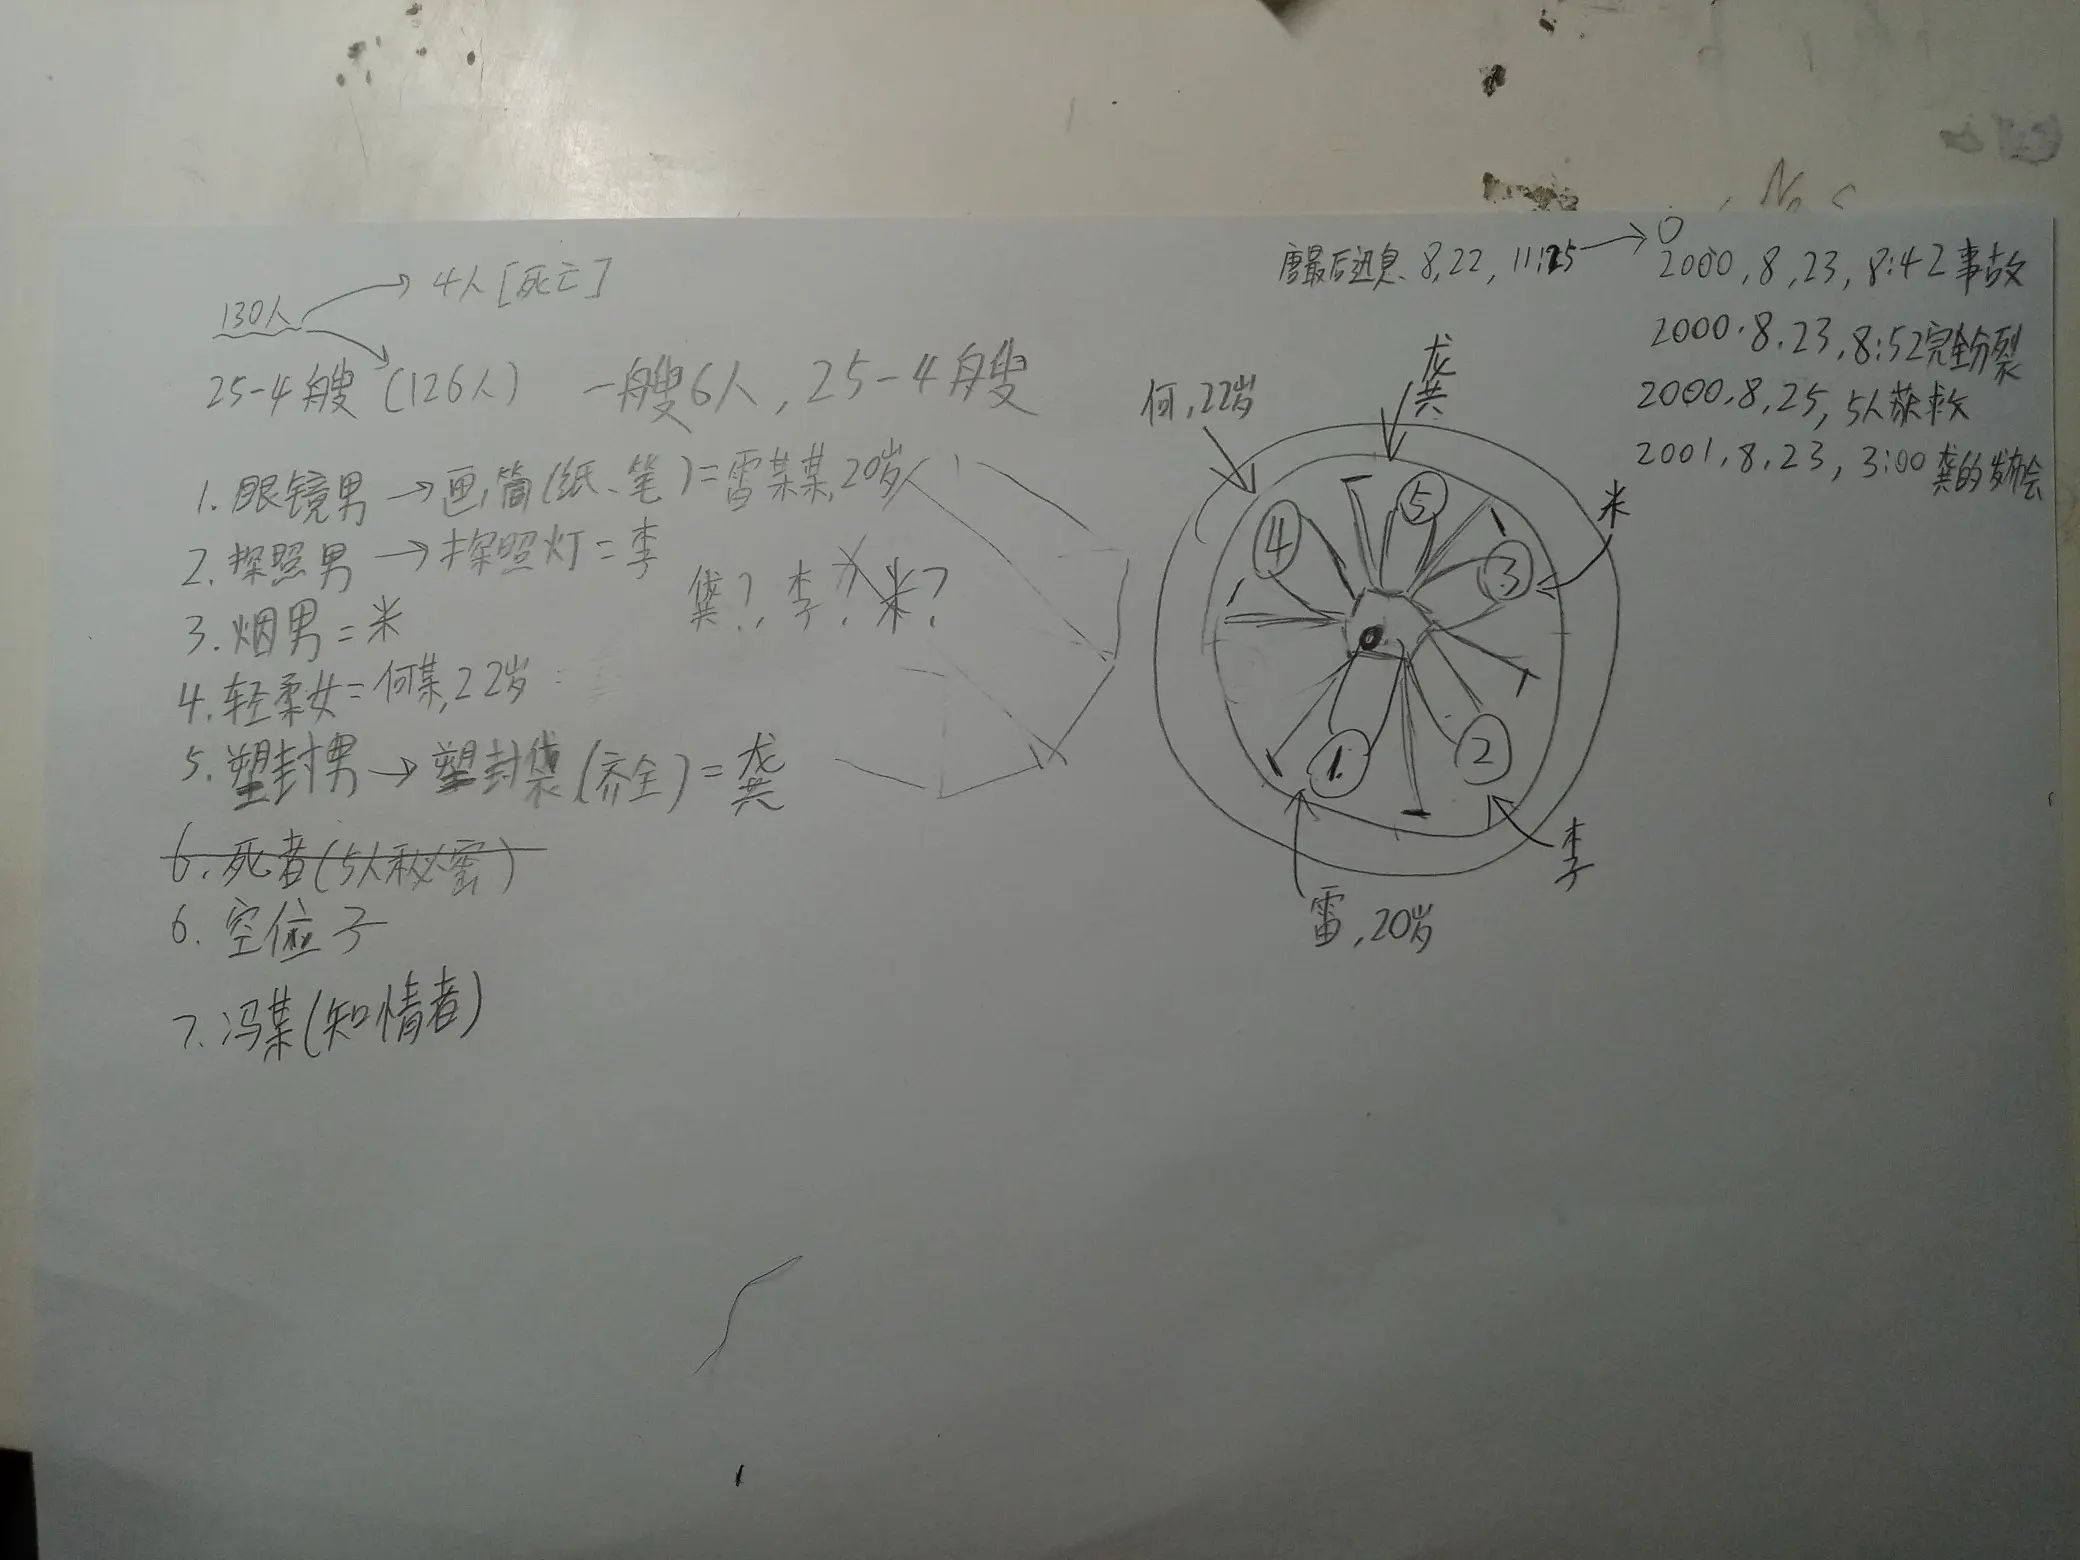 130人 → 4人[死亡]
25-4艘 (126人) 一艘6人, 25-4艘
1. 眼镜男 → 画筒(纸、笔) = 雷某某, 20岁
2. 探照男 → 探照灯 = 李
3. 烟男 = 米
龚?, 李? 米?
4. 轻柔女 = 何某, 22岁
5. 塑封男 → 塑封袋(齐全) = 龚
6. 死者(5人秘密)
6. 空位子
7. 冯某(知情者)
唐最后迅息、8,22, 11:25 → 0
2000, 8, 23, 8:42事故
2000. 8. 23, 8:52完全分裂
2000, 8, 25, 5人获救
2001, 8, 23, 3:00龚的发布会
何, 22岁
龚
米
⑤
④
③
①
②
李
雷, 20岁